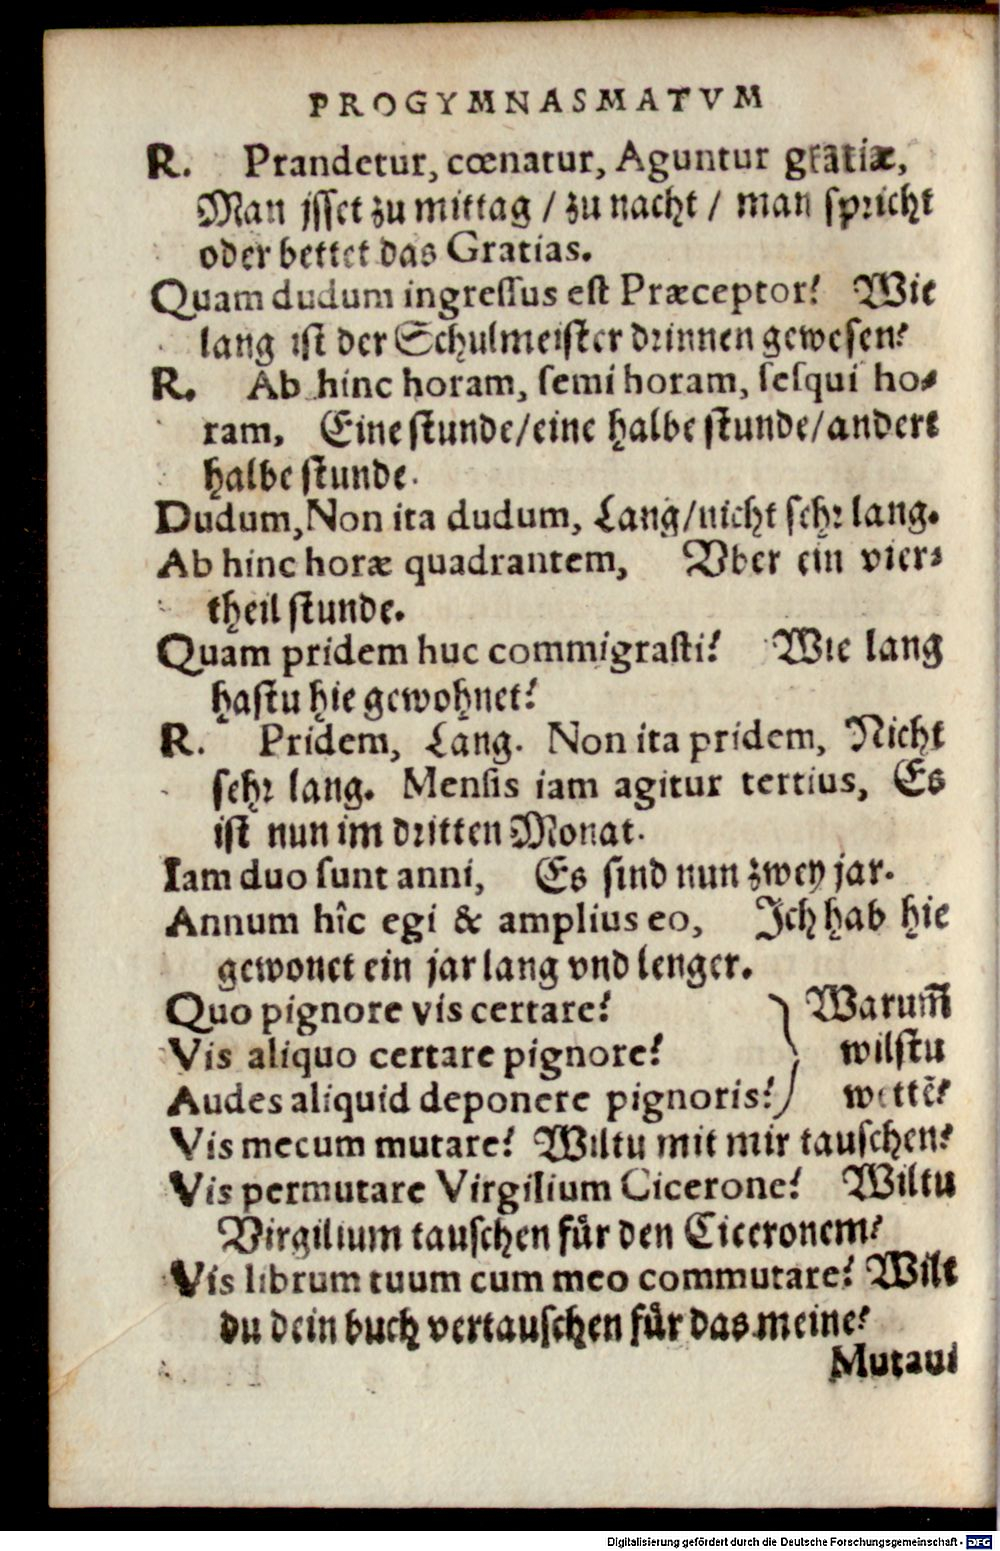 PROGYMNASMATVM
R. Prandetur, cœnatur, Aguntur gratiæ,
Man jsset zu mittag / zu nacht / man spricht
oder bettet das Gratias.
Quam dudum ingressus est Præceptor? Wie
lang ist der Schulmeister drinnen gewesen?
R. Ab hinc horam, semi horam, sesqui ho-
ram, Eine stunde/eine halbe stunde/andert
halbe stunde.
Dudum, Non ita dudum, Lang/nicht sehr lang.
Ab hinc horæ quadrantem, Vber ein vier-
theil stunde.
Quam pridem huc commigrasti? Wie lang
hastu hie gewohnet?
R. Pridem, Lang. Non ita pridem, Nicht
sehr lang. Mensis iam agitur tertius, Es
ist nun im dritten Monat.
Iam duo sunt anni, Es sind nun zwey jar.
Annum hîc egi & amplius eo, Ich hab hie
gewonet ein jar lang vnd lenger.
Quo pignore vis certare? } Warum̃
Vis aliquo certare pignore? wilstu
Audes aliquid deponere pignoris? wettẽ?
Vis mecum mutare? Wiltu mit mir tauschen?
Vis permutare Virgilium Cicerone? Wiltu
Virgilium tauschen für den Ciceronem?
Vis librum tuum cum meo commutare? Wilt
du dein buch vertauschen für das meine?
Mutaui
Digitalisierung gefördert durch die Deutsche Forschungsgemeinschaft - DFG